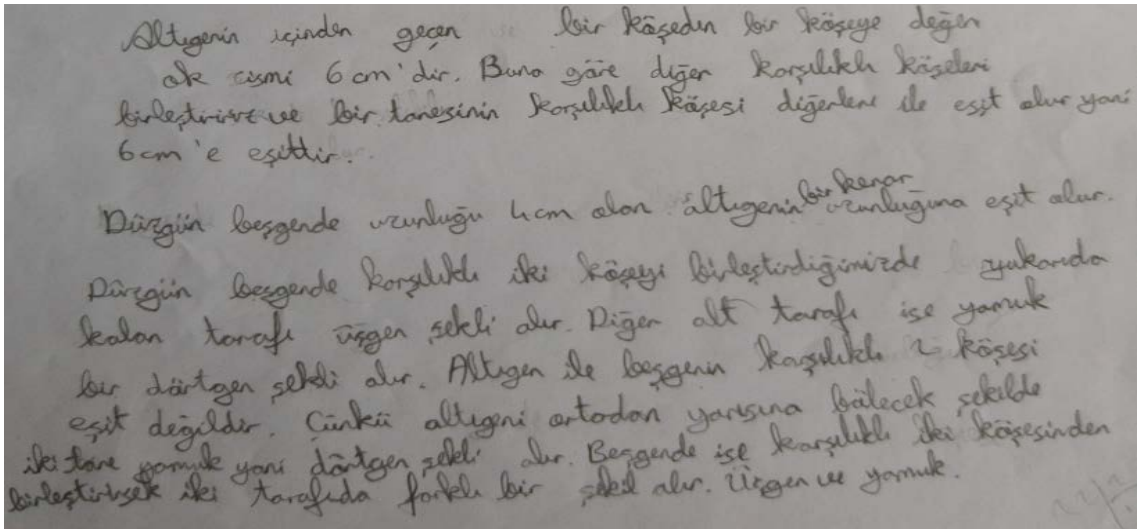 Altıgenin içinden geçen bir köşeden bir köşeye değen
ok cismi 6 cm'dir. Buna göre diğer karşılıklı köşeleri
birleştiririz ve bir tanesinin karşılıklı köşesi diğerleri ile eşit olur yani
6 cm'e eşittir.
Düzgün beşgende uzunluğu 4 cm olan altıgenin bir kenar uzunluğuna eşit olur.
Düzgün beşgende karşılıklı iki köşeyi birleştirdiğimizde yukarıda
kalan tarafı üçgen şekli alır. Diğer alt tarafı ise yamuk
bir dörtgen şekli alır. Altıgen ile beşgenin karşılıklı 2 köşesi
eşit değildir. Çünkü altıgeni ortadan yarısına bölecek şekilde
iki tane yamuk yani dörtgen şekli alır. Beşgende ise karşılıklı iki köşesinden
birleştirirsek iki tarafıda farklı bir şekil alır. Üçgen ve yamuk.